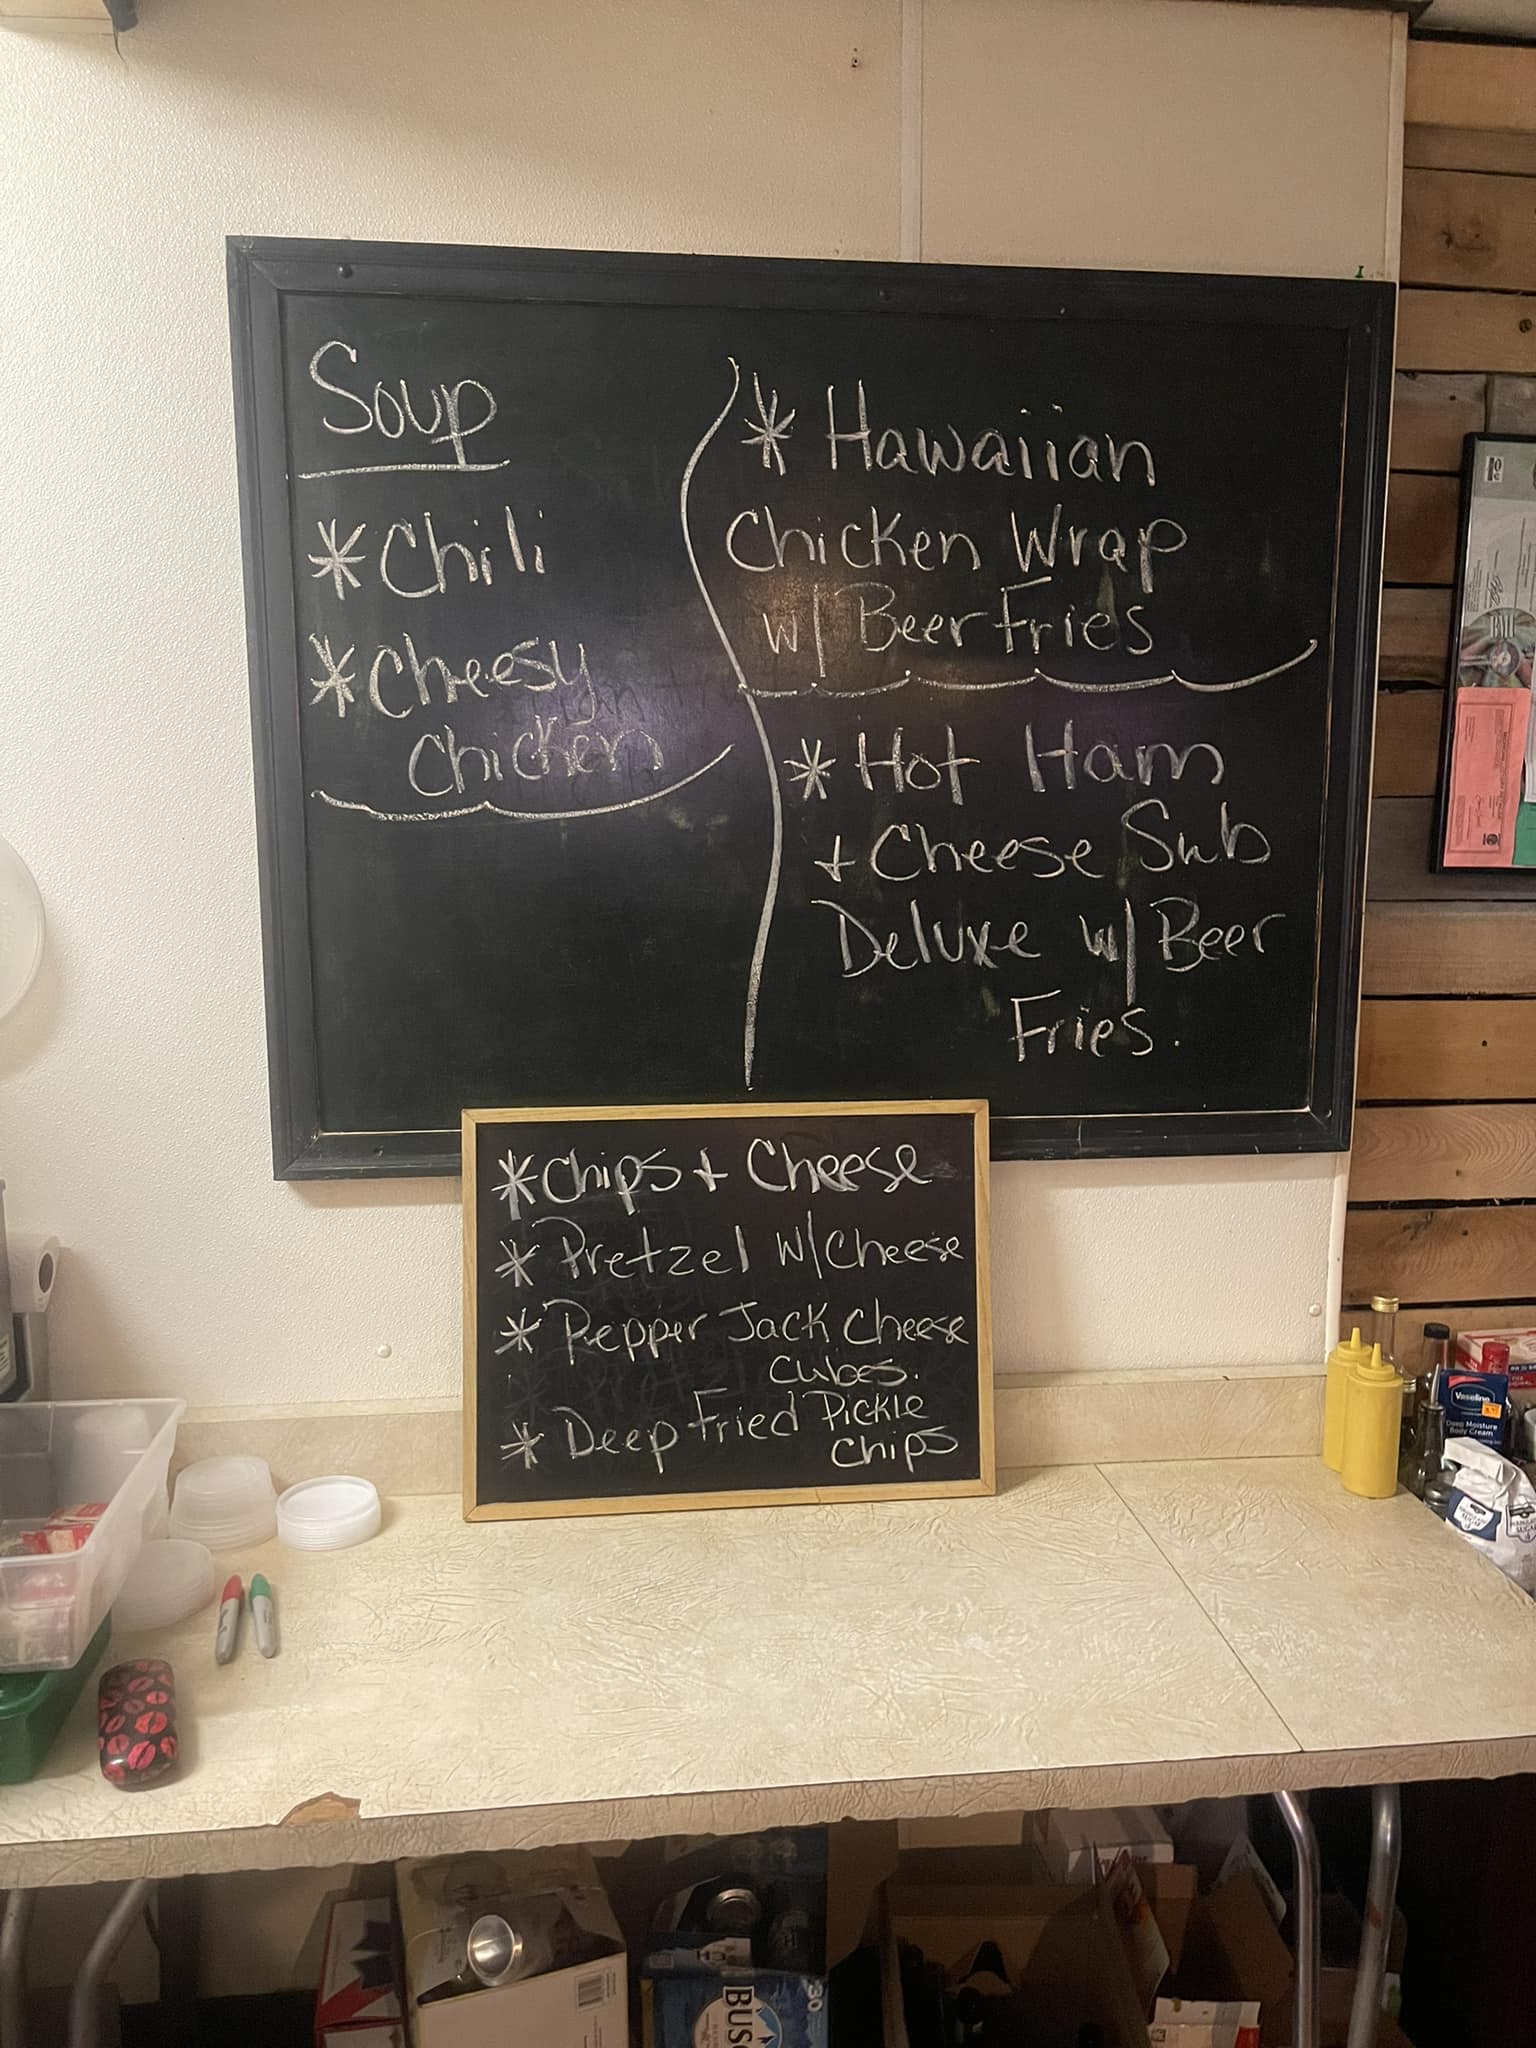 Soup
*Chili
*Cheesy
Chicken
* Hawaiian
Chicken Wrap
w/ Beer Fries
* Hot Ham
+ Cheese Sub
Deluxe w/ Beer
Fries.
*Chips + Cheese
* Pretzel w/Cheese
* Pepper Jack Cheese
Cubes.
* Deep Fried Pickle
Chips
Vaseline
Deep Moisture
Body Cream
BUSC
30